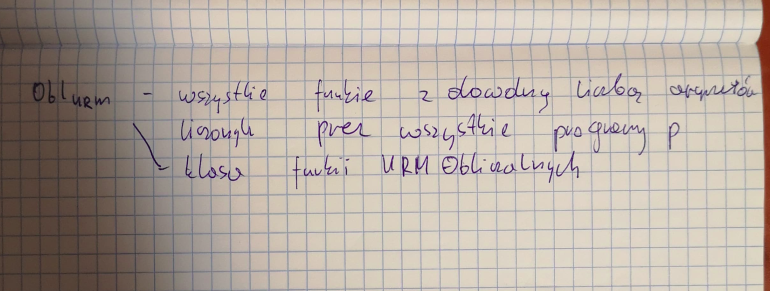 Obl URM - wszystkie funkcje z dowolną liczbą argumentów
liczonych przez wszystkie programy P
klasa funkcji URM Obliczalnych